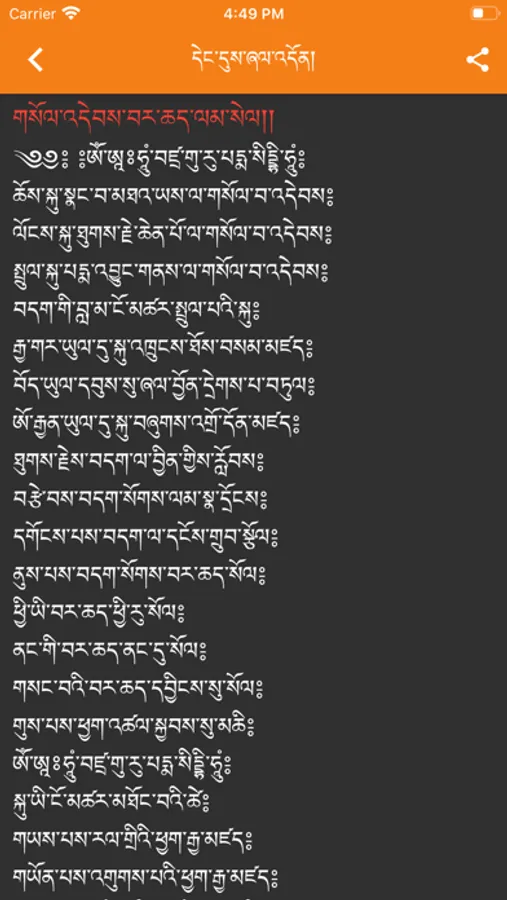 Carrier 4:49 PM
དེང་དུས་ཞལ་འདོན།
གསོལ་འདེབས་བར་ཆད་ལམ་སེལ།།
༄༅༔ ༔ཨོཾ་ཨཱཿཧཱུྃ་བཛྲ་གུ་རུ་པདྨ་སིདྡྷི་ཧཱུྃ༔
ཆོས་སྐུ་སྣང་བ་མཐའ་ཡས་ལ་གསོལ་བ་འདེབས༔
ལོངས་སྐུ་ཐུགས་རྗེ་ཆེན་པོ་ལ་གསོལ་བ་འདེབས༔
སྤྲུལ་སྐུ་པདྨ་འབྱུང་གནས་ལ་གསོལ་བ་འདེབས༔
བདག་གི་བླ་མ་ངོ་མཚར་སྤྲུལ་པའི་སྐུ༔
རྒྱ་གར་ཡུལ་དུ་སྐུ་འཁྲུངས་ཐོས་བསམ་མཛད༔
བོད་ཡུལ་དབུས་སུ་ཞལ་བྱོན་དྲེགས་པ་བཏུལ༔
ཨོ་རྒྱན་ཡུལ་དུ་སྐུ་བཞུགས་འགྲོ་དོན་མཛད༔
ཐུགས་རྗེས་བདག་ལ་བྱིན་གྱིས་རློབས༔
བརྩེ་བས་བདག་སོགས་ལམ་སྣ་དྲོངས༔
དགོངས་པས་བདག་ལ་དངོས་གྲུབ་སྩོལ༔
ནུས་པས་བདག་སོགས་བར་ཆད་སོལ༔
ཕྱི་ཡི་བར་ཆད་ཕྱི་རུ་སོལ༔
ནང་གི་བར་ཆད་ནང་དུ་སོལ༔
གསང་བའི་བར་ཆད་དབྱིངས་སུ་སོལ༔
གུས་པས་ཕྱག་འཚལ་སྐྱབས་སུ་མཆི༔
ཨོཾ་ཨཱཿཧཱུྃ་བཛྲ་གུ་རུ་པདྨ་སིདྡྷི་ཧཱུྃ༔
སྐུ་ཡི་ངོ་མཚར་མཐོང་བའི་ཚེ༔
གཡས་པས་རལ་གྲིའི་ཕྱག་རྒྱ་མཛད༔
གཡོན་པས་འགུགས་པའི་ཕྱག་རྒྱ་མཛད༔